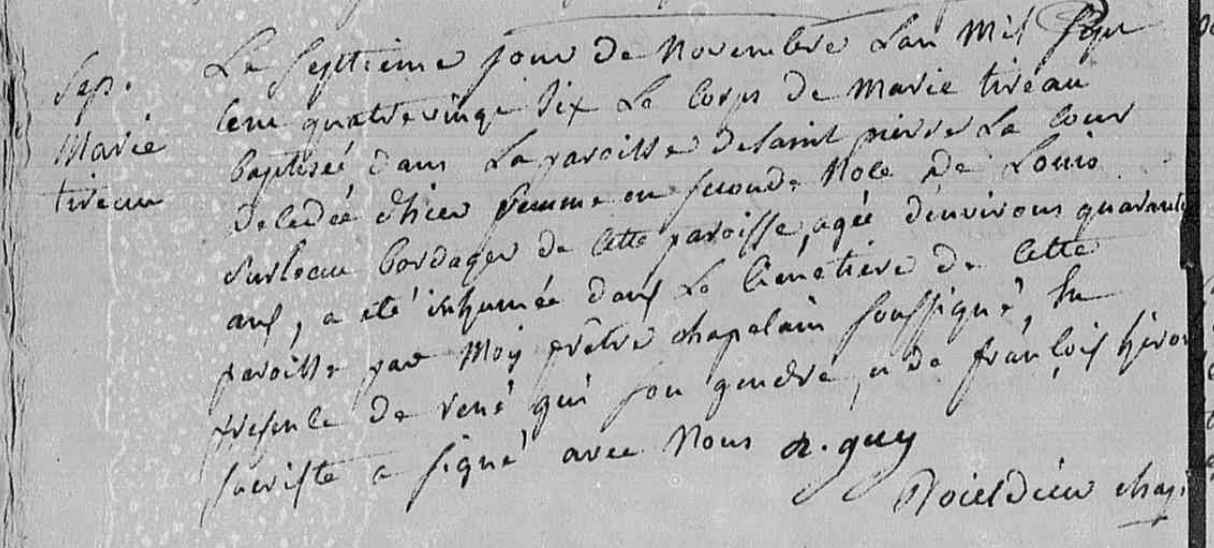 Sep.
Marie
tireau
Le septieme jour de Novembre Lan Mil Sept
Cent quatrevingt Six Le Corps de Marie tireau
baptisée dans La paroisse de saint pierre La Cour
deledée d'hier femme en seconde Noce De Louis
Surleau bordager de cette paroisse, agée d'environs quarante
ans, a été inhumée dans Le Cimetiere de Cette
paroisse par Moy prêtre chapelain soussigné, En
presence de rené gui son gendre, et de françois hiron
sacriste a signé avec Nous r. guy
Noieldieu chap.